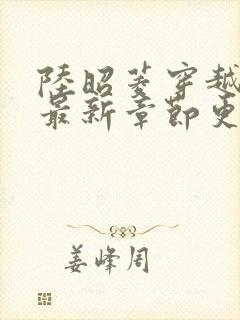 陸昭菱穿越
最新章節更
姜峰周